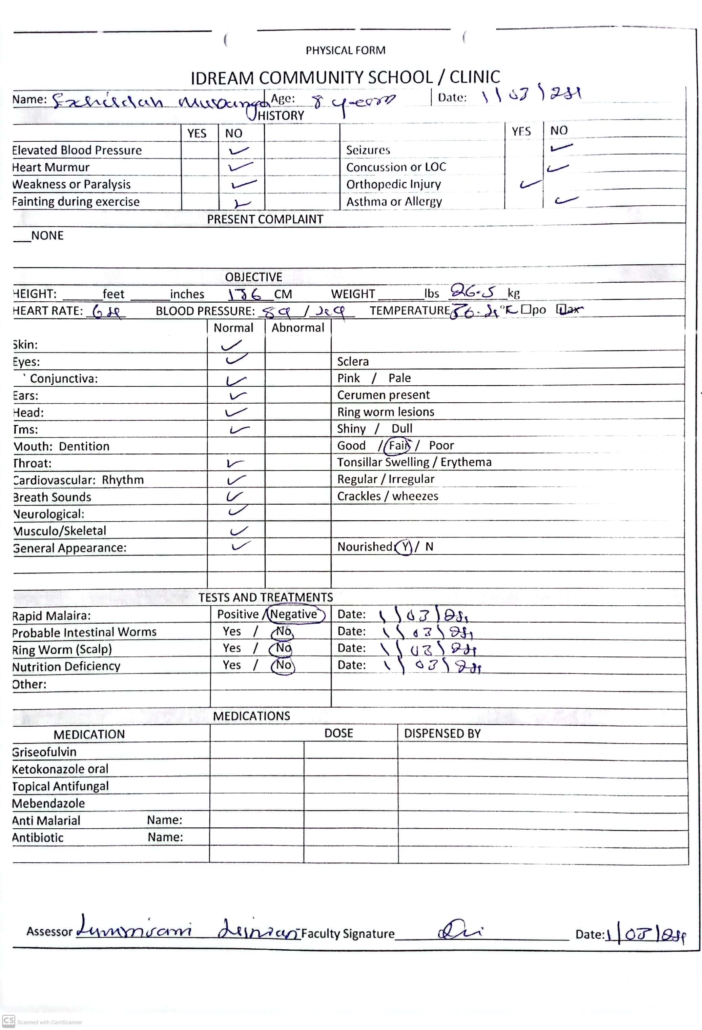 PHYSICAL FORM
IDREAM COMMUNITY SCHOOL / CLINIC
Name: Age: 8 years Date: 1/03/24
HISTORY
YES NO YES NO
Elevated Blood Pressure ✓ Seizures ✓
Heart Murmur ✓ Concussion or LOC ✓
Weakness or Paralysis ✓ Orthopedic Injury ✓
Fainting during exercise ✓ Asthma or Allergy ✓
PRESENT COMPLAINT
__NONE
OBJECTIVE
HEIGHT: ______feet ______inches 136 CM WEIGHT ______lbs 26.5 kg
HEART RATE: BLOOD PRESSURE: TEMPERATURE °F □po □ax
Normal Abnormal
Skin: ✓
Eyes: ✓ Sclera
Conjunctiva: ✓ Pink / Pale
Ears: ✓ Cerumen present
Head: ✓ Ring worm lesions
Tms: ✓ Shiny / Dull
Mouth: Dentition Good / Fair / Poor
Throat: ✓ Tonsillar Swelling / Erythema
Cardiovascular: Rhythm ✓ Regular / Irregular
Breath Sounds ✓ Crackles / wheezes
Neurological: ✓
Musculo/Skeletal ✓
General Appearance: ✓ Nourished Y / N
TESTS AND TREATMENTS
Rapid Malaira: Positive / Negative Date: 1/03/24
Probable Intestinal Worms Yes / No Date: 1/03/24
Ring Worm (Scalp) Yes / No Date: 1/03/24
Nutrition Deficiency Yes / No Date: 1/03/24
Other:
MEDICATIONS
MEDICATION DOSE DISPENSED BY
Griseofulvin
Ketokonazole oral
Topical Antifungal
Mebendazole
Anti Malarial Name:
Antibiotic Name:
Assessor Faculty Signature Date: 1/03/24
CS Scanned with CamScanner